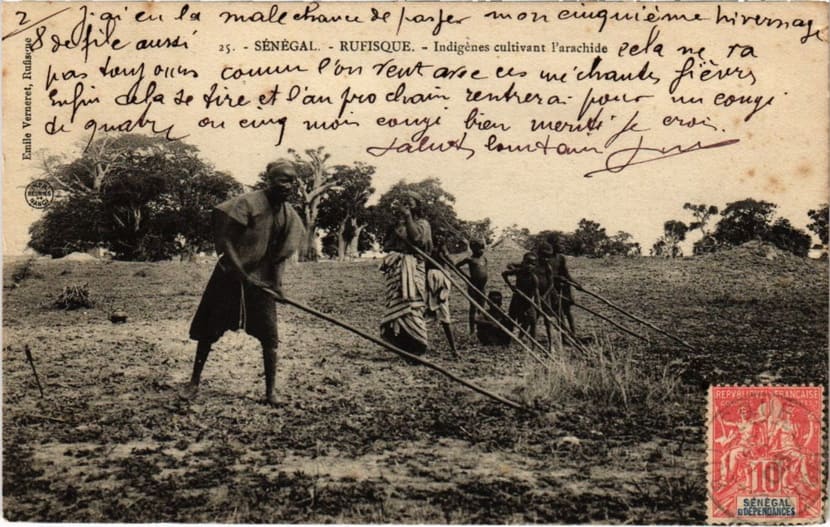 2 J'ai eu la malechance de passer mon cinquième hivernage
8 de file aussi
25. - SÉNÉGAL. - RUFISQUE. - Indigènes cultivant l'arachide
cela ne va
pas toujours comme l'on veut avec ces méchantes fièvres
Enfin cela se tire et l'an prochain rentrerai pour un congé
de quatre ou cinq mois congé bien mérité je crois.
Salut
Emile Verneret, Rufisque
RÉPUBLIQUE FRANÇAISE
10
SÉNÉGAL
ET DÉPENDANCES